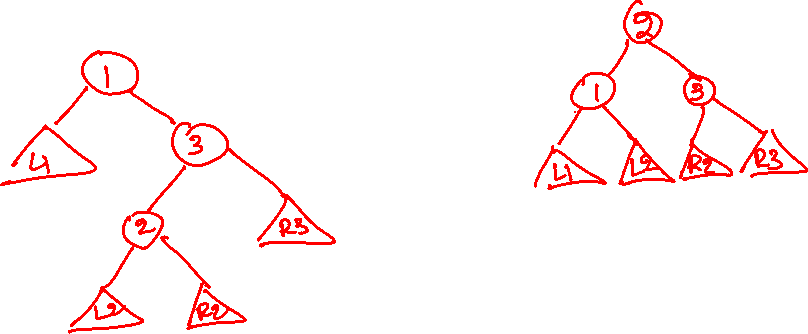 1
L1
3
2
R3
L2
R2
2
1
3
L1
L2
R2
R3